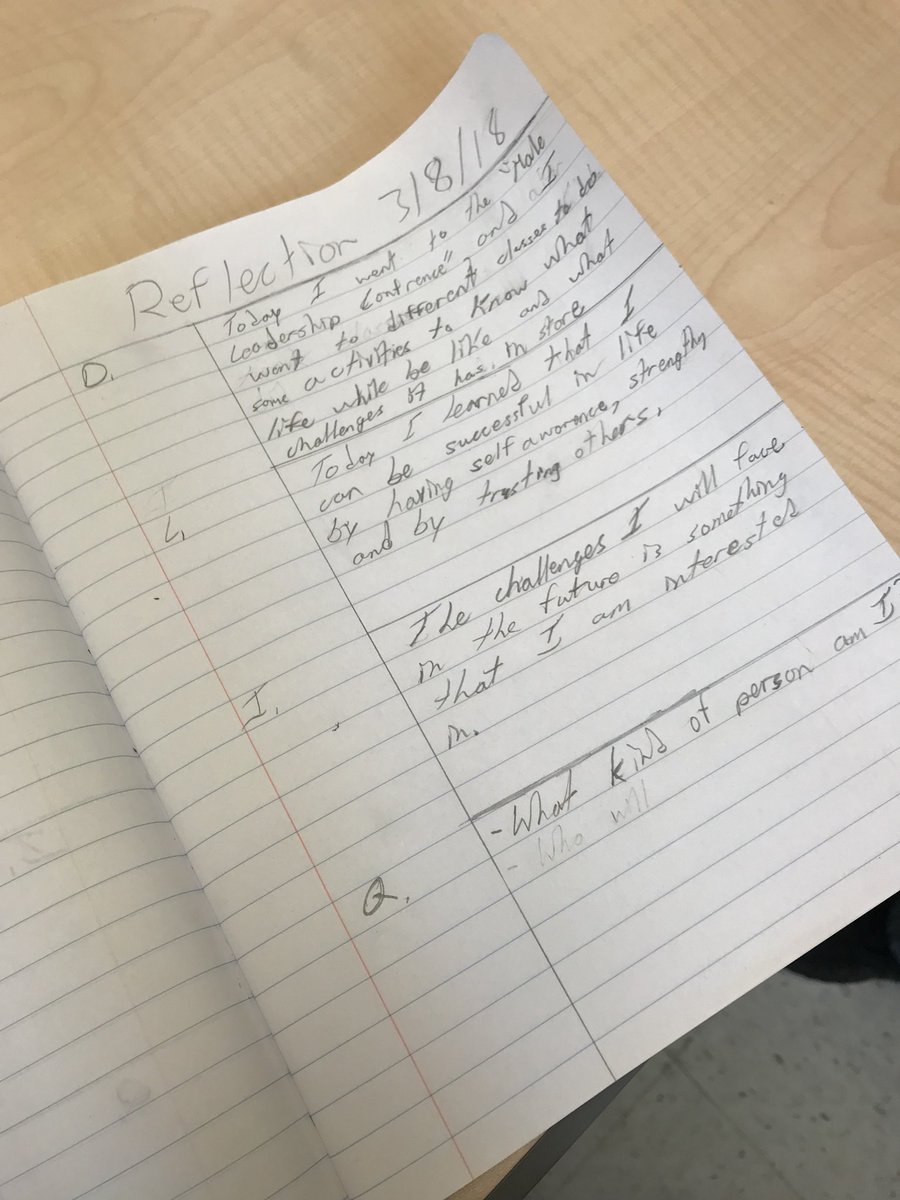 Reflection 3/8/18
D.
Today I went to the "Male
Leadership Confrence" and I
went to different classes to do
some activities to know what
life while be like and what
challenges it has in store
L.
Today I learned that I
can be successful in life
by having self awarence, strengthy
and by trusting others.
I.
The challenges I will face
in the future is something
that I am interested
in.
Q.
- What kind of person am I
- Who will